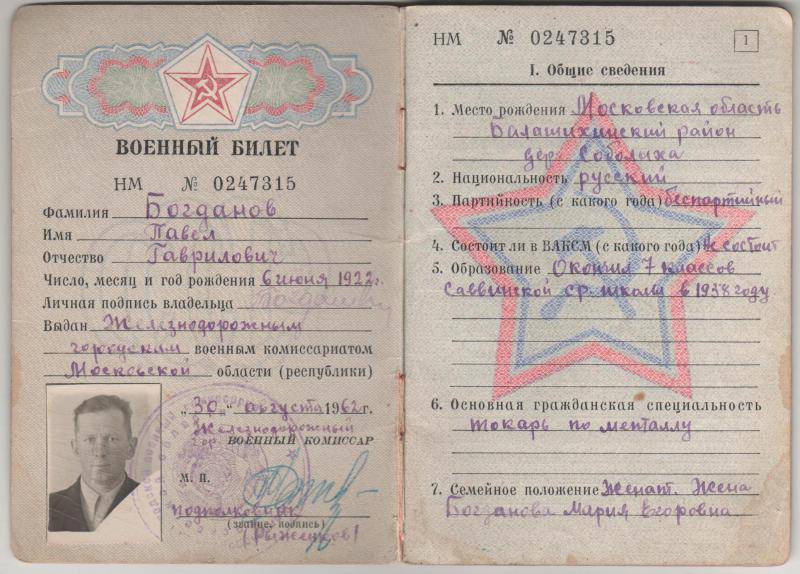 ВОЕННЫЙ БИЛЕТ
НМ № 0247315
Фамилия Богданов
Имя Павел
Отчество Гаврилович
Число, месяц и год рождения 6 июня 1922 г.
Личная подпись владельца Богданов
Выдан Железнодорожным
городским военным комиссариатом
Московской области (республики)
„30“ августа 1962 г.
Железнодорожный
гор. ВОЕННЫЙ КОМИССАР
М. П.
подполковник
(звание, подпись)
НМ № 0247315
1
I. Общие сведения
1. Место рождения Московская область
Балашихинский район
дер. Соболиха
2. Национальность русский
3. Партийность (с какого года) беспартийный
4. Состоит ли в ВЛКСМ (с какого года) Не состоит
5. Образование Окончил 7 классов
Саввинской ср. школы в 1938 году
6. Основная гражданская специальность
токарь по метталлу
7. Семейное положение Женат. Жена
Богданова Мария Егоровна